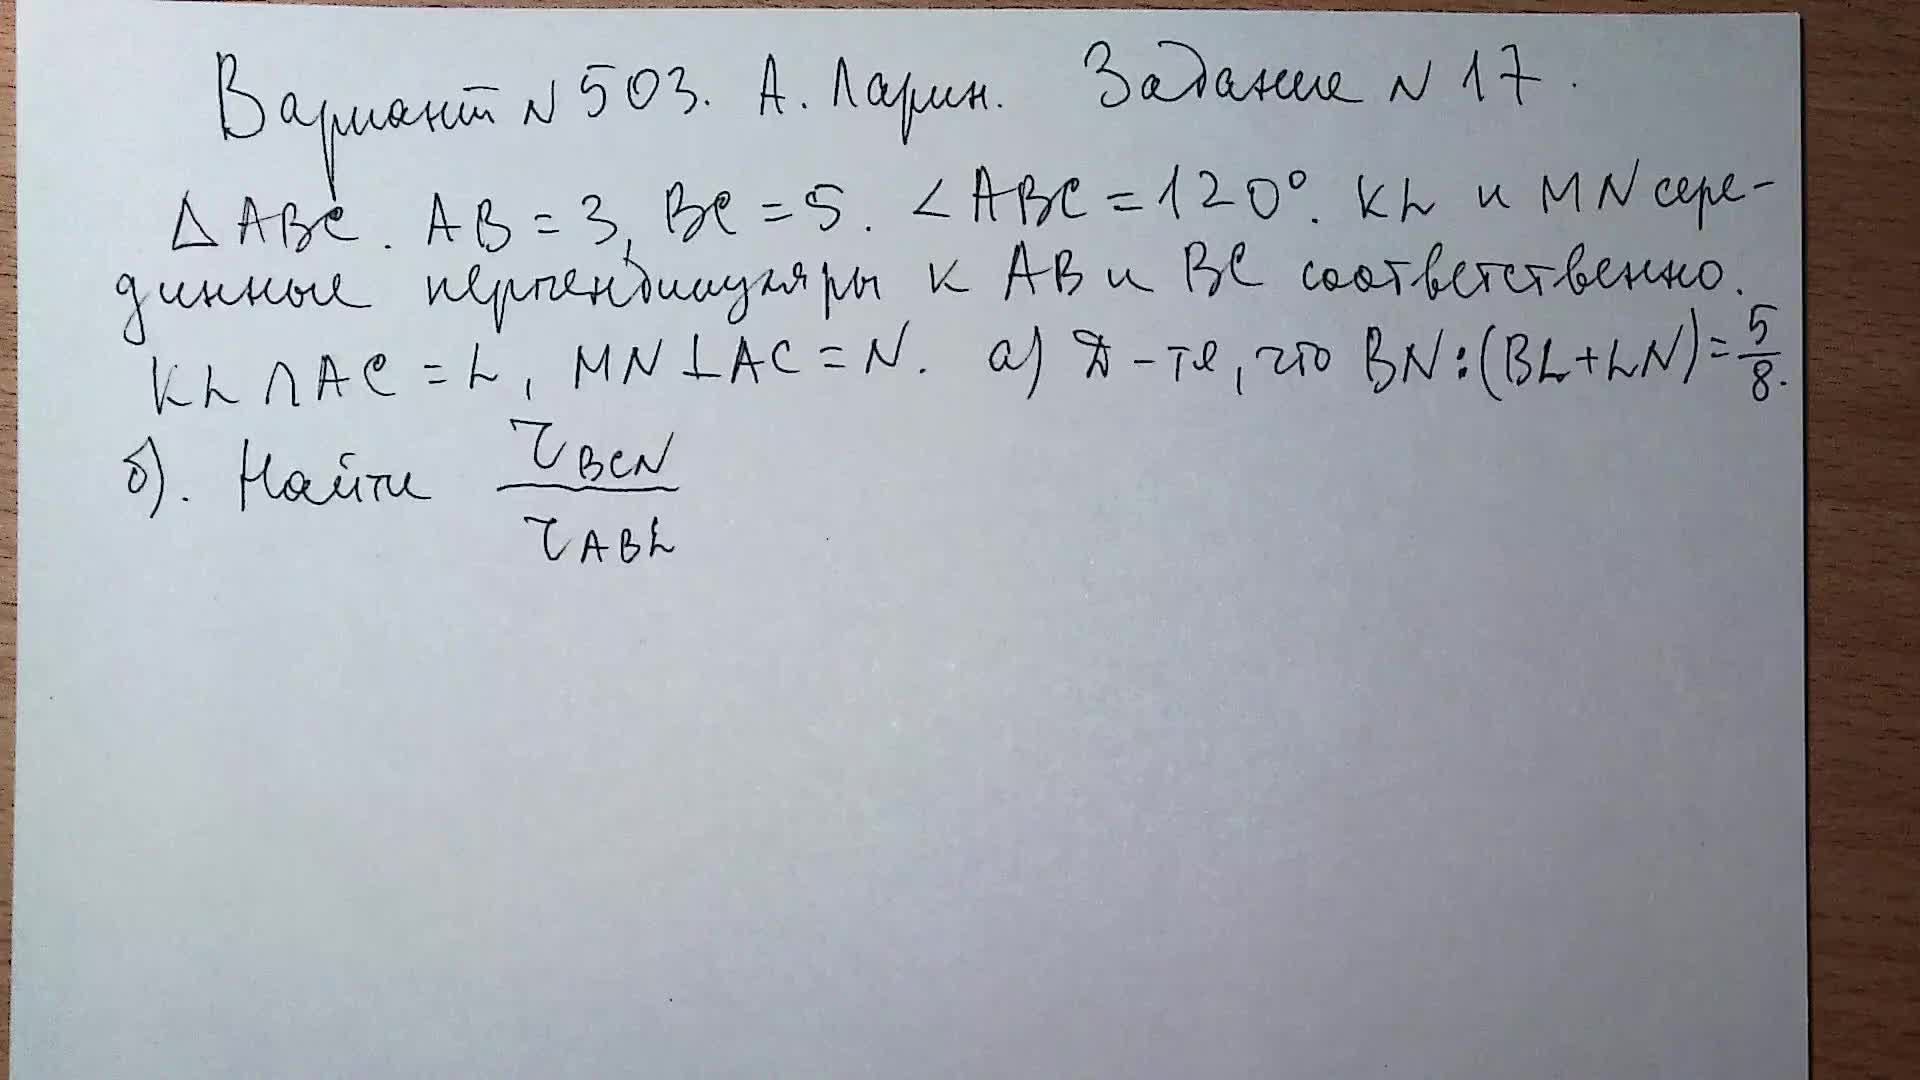 Вариант N 503. А. Ларин. Задание N 17.
Δ ABC. AB = 3, BC = 5. ∠ABC = 120°. KL и MN сере-
динные перпендикуляры к AB и BC соответственно.
KL ∩ AC = L, MN ⊥ AC = N. а) Д-те, что BN : (BL + LN) = 5/8.
б). Найти r_BCN / r_ABL